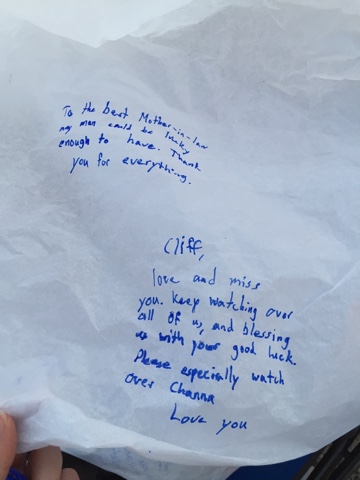 To the best Mother-in-law
any man could be lucky
enough to have. Thank
you for everything.
Cliff,
love and miss
you. Keep watching over
all of us, and blessing
us with your good luck.
Please especially watch
over Channa
Love you